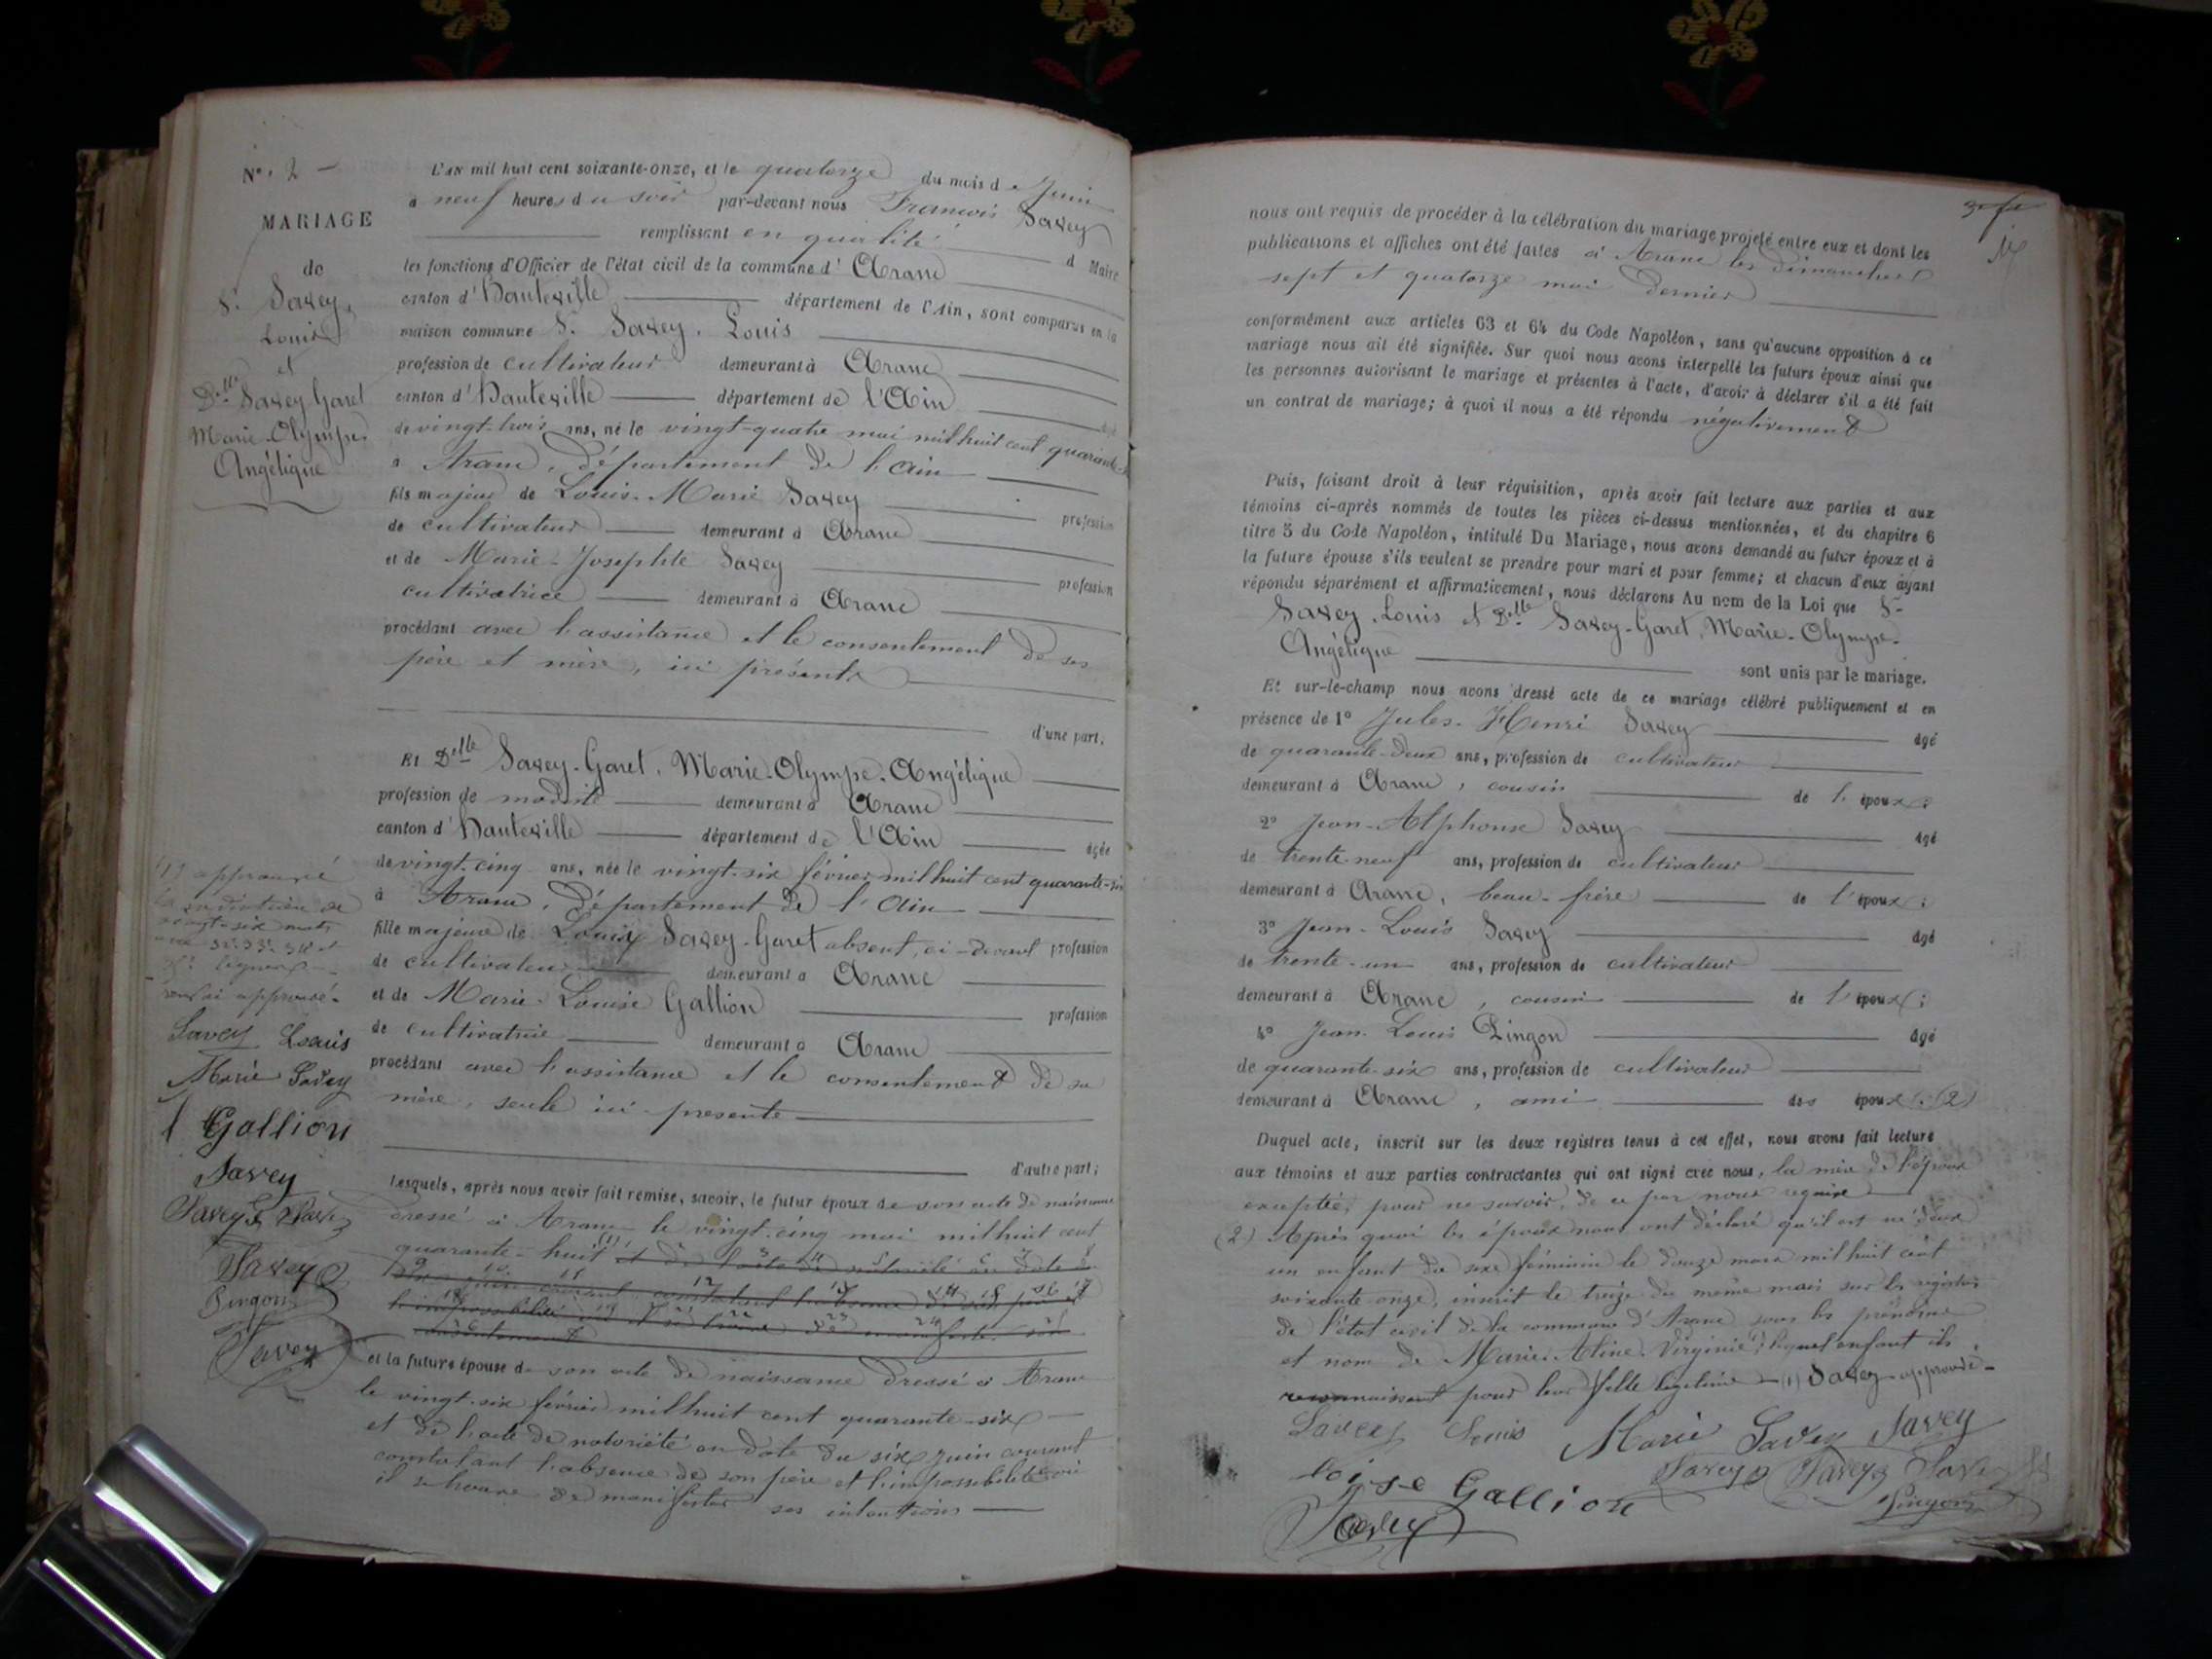 N.° 2
MARIAGE
de
S.r Savey,
Louis
et
D.elle Savey-Garet
Marie-Olympe
Angélique
L'AN mil huit cent soixante-onze, et le quatorze du mois de Juin
à neuf heures du soir par-devant nous François Savey
remplissant en qualité de Maire
les fonctions d'Officier de l'état civil de la commune d'Aranc
canton d'Hauteville département de l'Ain, sont comparus en la
maison commune S. Savey, Louis
profession de cultivateur demeurant à Aranc
canton d'Hauteville département de l'Ain
de vingt-trois ans, né le vingt-quatre mai mil huit cent quarante
à Aranc, département de l'Ain
fils majeur de Louis-Marie Savey profession
de cultivateur demeurant à Aranc
et de Marie-Josephte Savey profession
cultivatrice demeurant à Aranc
procédant avec l'assistance et le consentement de ses
père et mère, ici présents
d'une part;
Et D.elle Savey-Garet, Marie-Olympe-Angélique
profession de modiste demeurant à Aranc
canton d'Hauteville département de l'Ain âgée
de vingt-cinq ans, née le vingt-six février mil huit cent quarante-six
à Aranc, département de l'Ain
fille majeure de Louis Savey-Garet absent, ci-devant profession
de cultivateur demeurant à Aranc
et de Marie-Louise Gallion profession
de cultivatrice demeurant à Aranc
procédant avec l'assistance et le consentement de sa
mère, seule ici présente
d'autre part;
Lesquels, après nous avoir fait remise, savoir, le futur époux de son acte de naissance
dressé à Aranc le vingt-cinq mai mil huit cent
quarante-huit (1) et de l'acte de notoriété en date du
six juin courant constatant l'absence de son père et
l'impossibilité où il se trouve de manifester son
consentement
et la future épouse de son acte de naissance dressé à Aranc
le vingt-six février mil huit cent quarante-six
et de l'acte de notoriété en date du six juin courant
constatant l'absence de son père et l'impossibilité où
il se trouve de manifester ses intentions
(1) approuvé
la radiation de
vingt-six mots
lignes
approuvé.
Savey Louis
Marie Savey
l Gallion
Savey
Savey
Savey
Pingon
Savey
nous ont requis de procéder à la célébration du mariage projeté entre eux et dont les
publications et affiches ont été faites à Aranc les dimanches
sept et quatorze mai dernier
conformément aux articles 63 et 64 du Code Napoléon, sans qu'aucune opposition à ce
mariage nous ait été signifiée. Sur quoi nous avons interpellé les futurs époux ainsi que
les personnes autorisant le mariage et présentes à l'acte, d'avoir à déclarer s'il a été fait
un contrat de mariage; à quoi il nous a été répondu négativement
Puis, faisant droit à leur réquisition, après avoir fait lecture aux parties et aux
témoins ci-après nommés de toutes les pièces ci-dessus mentionnées, et du chapitre 6
titre 5 du Code Napoléon, intitulé Du Mariage, nous avons demandé au futur époux et à
la future épouse s'ils veulent se prendre pour mari et pour femme; et chacun d'eux ayant
répondu séparément et affirmativement, nous déclarons Au nom de la Loi que S.
Savey, Louis et D.elle Savey-Garet, Marie-Olympe-
Angélique sont unis par le mariage.
Et sur-le-champ nous avons dressé acte de ce mariage célébré publiquement et en
présence de 1° Jules-Henri Savey âgé
de quarante-deux ans, profession de cultivateur
demeurant à Aranc, cousin de l'époux;
2° Jean-Alphonse Savey âgé
de trente-neuf ans, profession de cultivateur
demeurant à Aranc, beau-frère de l'époux;
3° Jean-Louis Savey âgé
de trente-un ans, profession de cultivateur
demeurant à Aranc, cousin de l'époux;
4° Jean-Louis Pingon âgé
de quarante-six ans, profession de cultivateur
demeurant à Aranc, ami des époux. (2)
Duquel acte, inscrit sur les deux registres tenus à cet effet, nous avons fait lecture
aux témoins et aux parties contractantes qui ont signé avec nous, la mère de l'époux
exceptée, pour ne savoir, de ce par nous requise
(2) Après quoi les époux nous ont déclaré qu'il est né d'eux
un enfant du sexe féminin le douze mars mil huit cent
soixante-onze, inscrit le treize du même mois sur les registres
de l'état civil de la commune d'Aranc sous les prénoms
et nom de Marie-Aline-Virginie (1) lequel enfant ils
reconnaissent pour leur fille légitime (1) Savey approuvé.
Savey Louis Marie Savey Savey
loise Gallion Savey Savey Savey
Savey Pingon